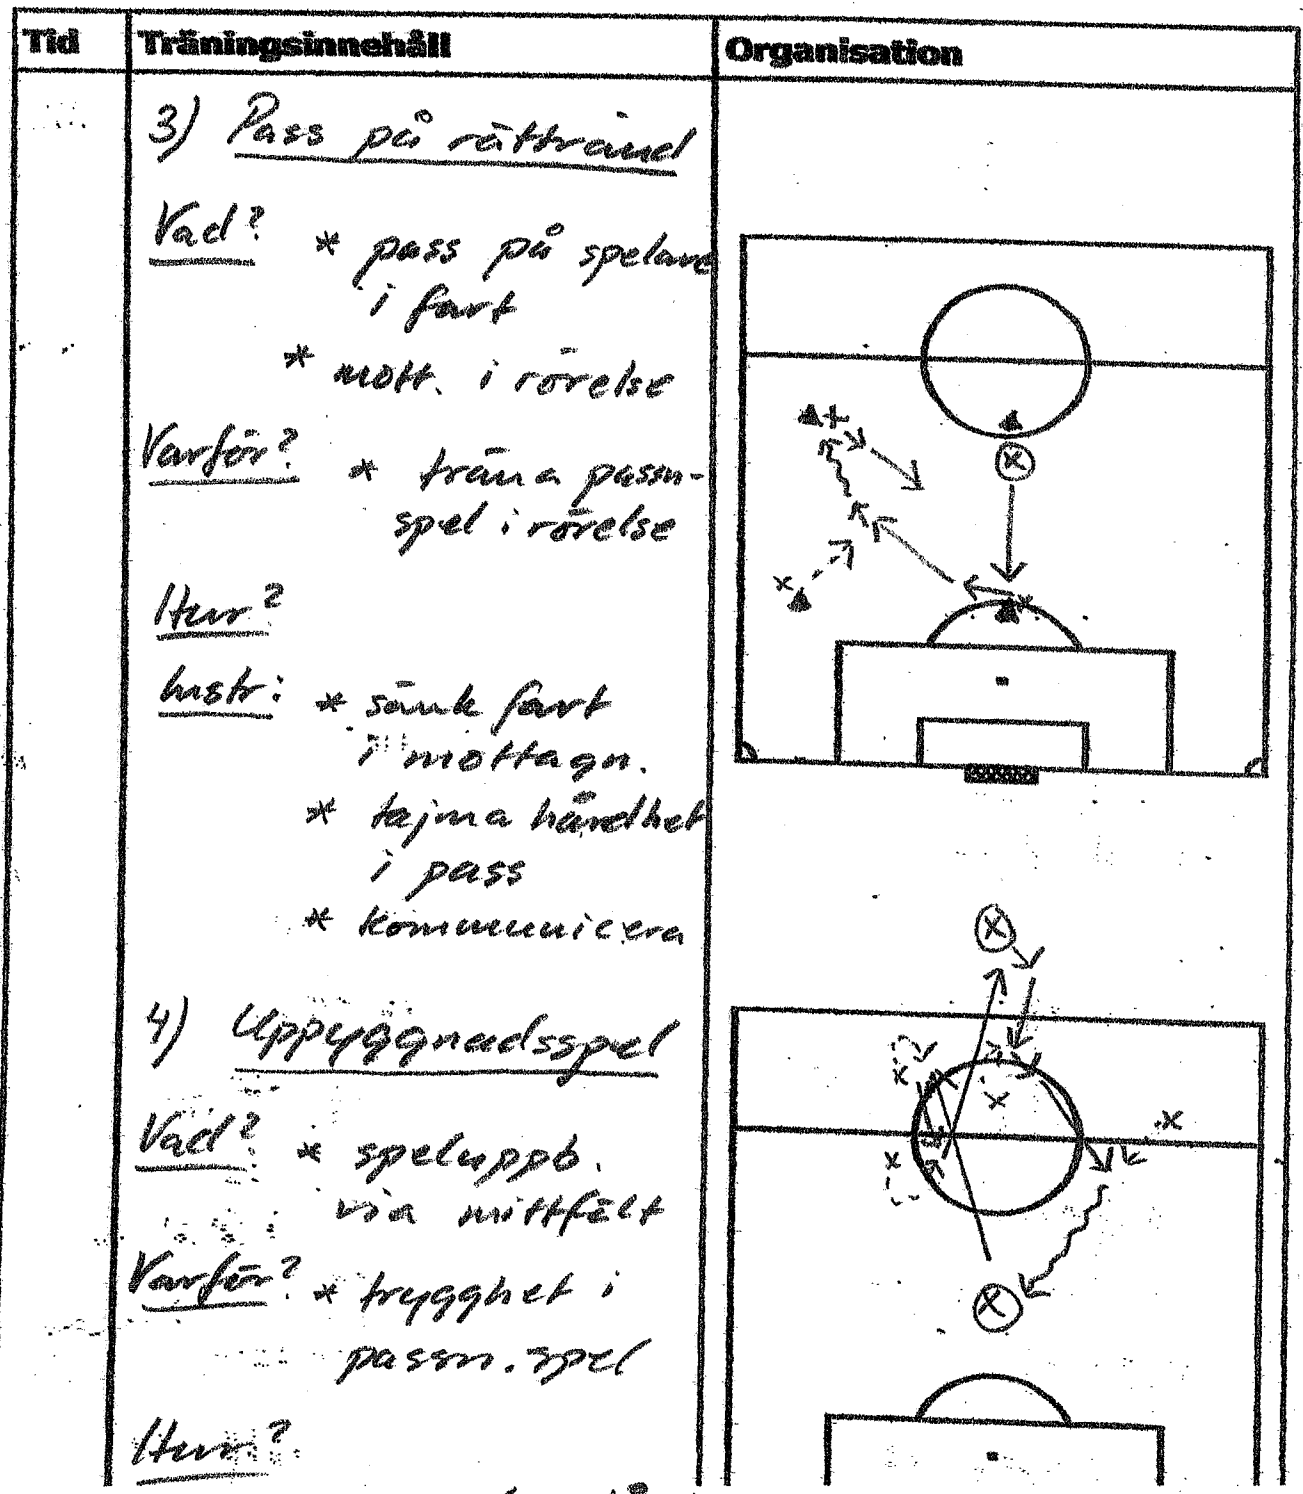 Tid Träningsinnehåll Organisation
3) Pass på rättvänd
Vad? * pass på spelare
i fart
* mott. i rörelse
Varför? * träna passn-
spel i rörelse
Hur?
Instr: * sänk fart
i mottagn.
* tajma hårdhet
i pass
* kommunicera
4) Uppyggnadsspel
Vad? * speluppb.
via mittfält
Varför? * trygghet i
passn.spel
Hur?